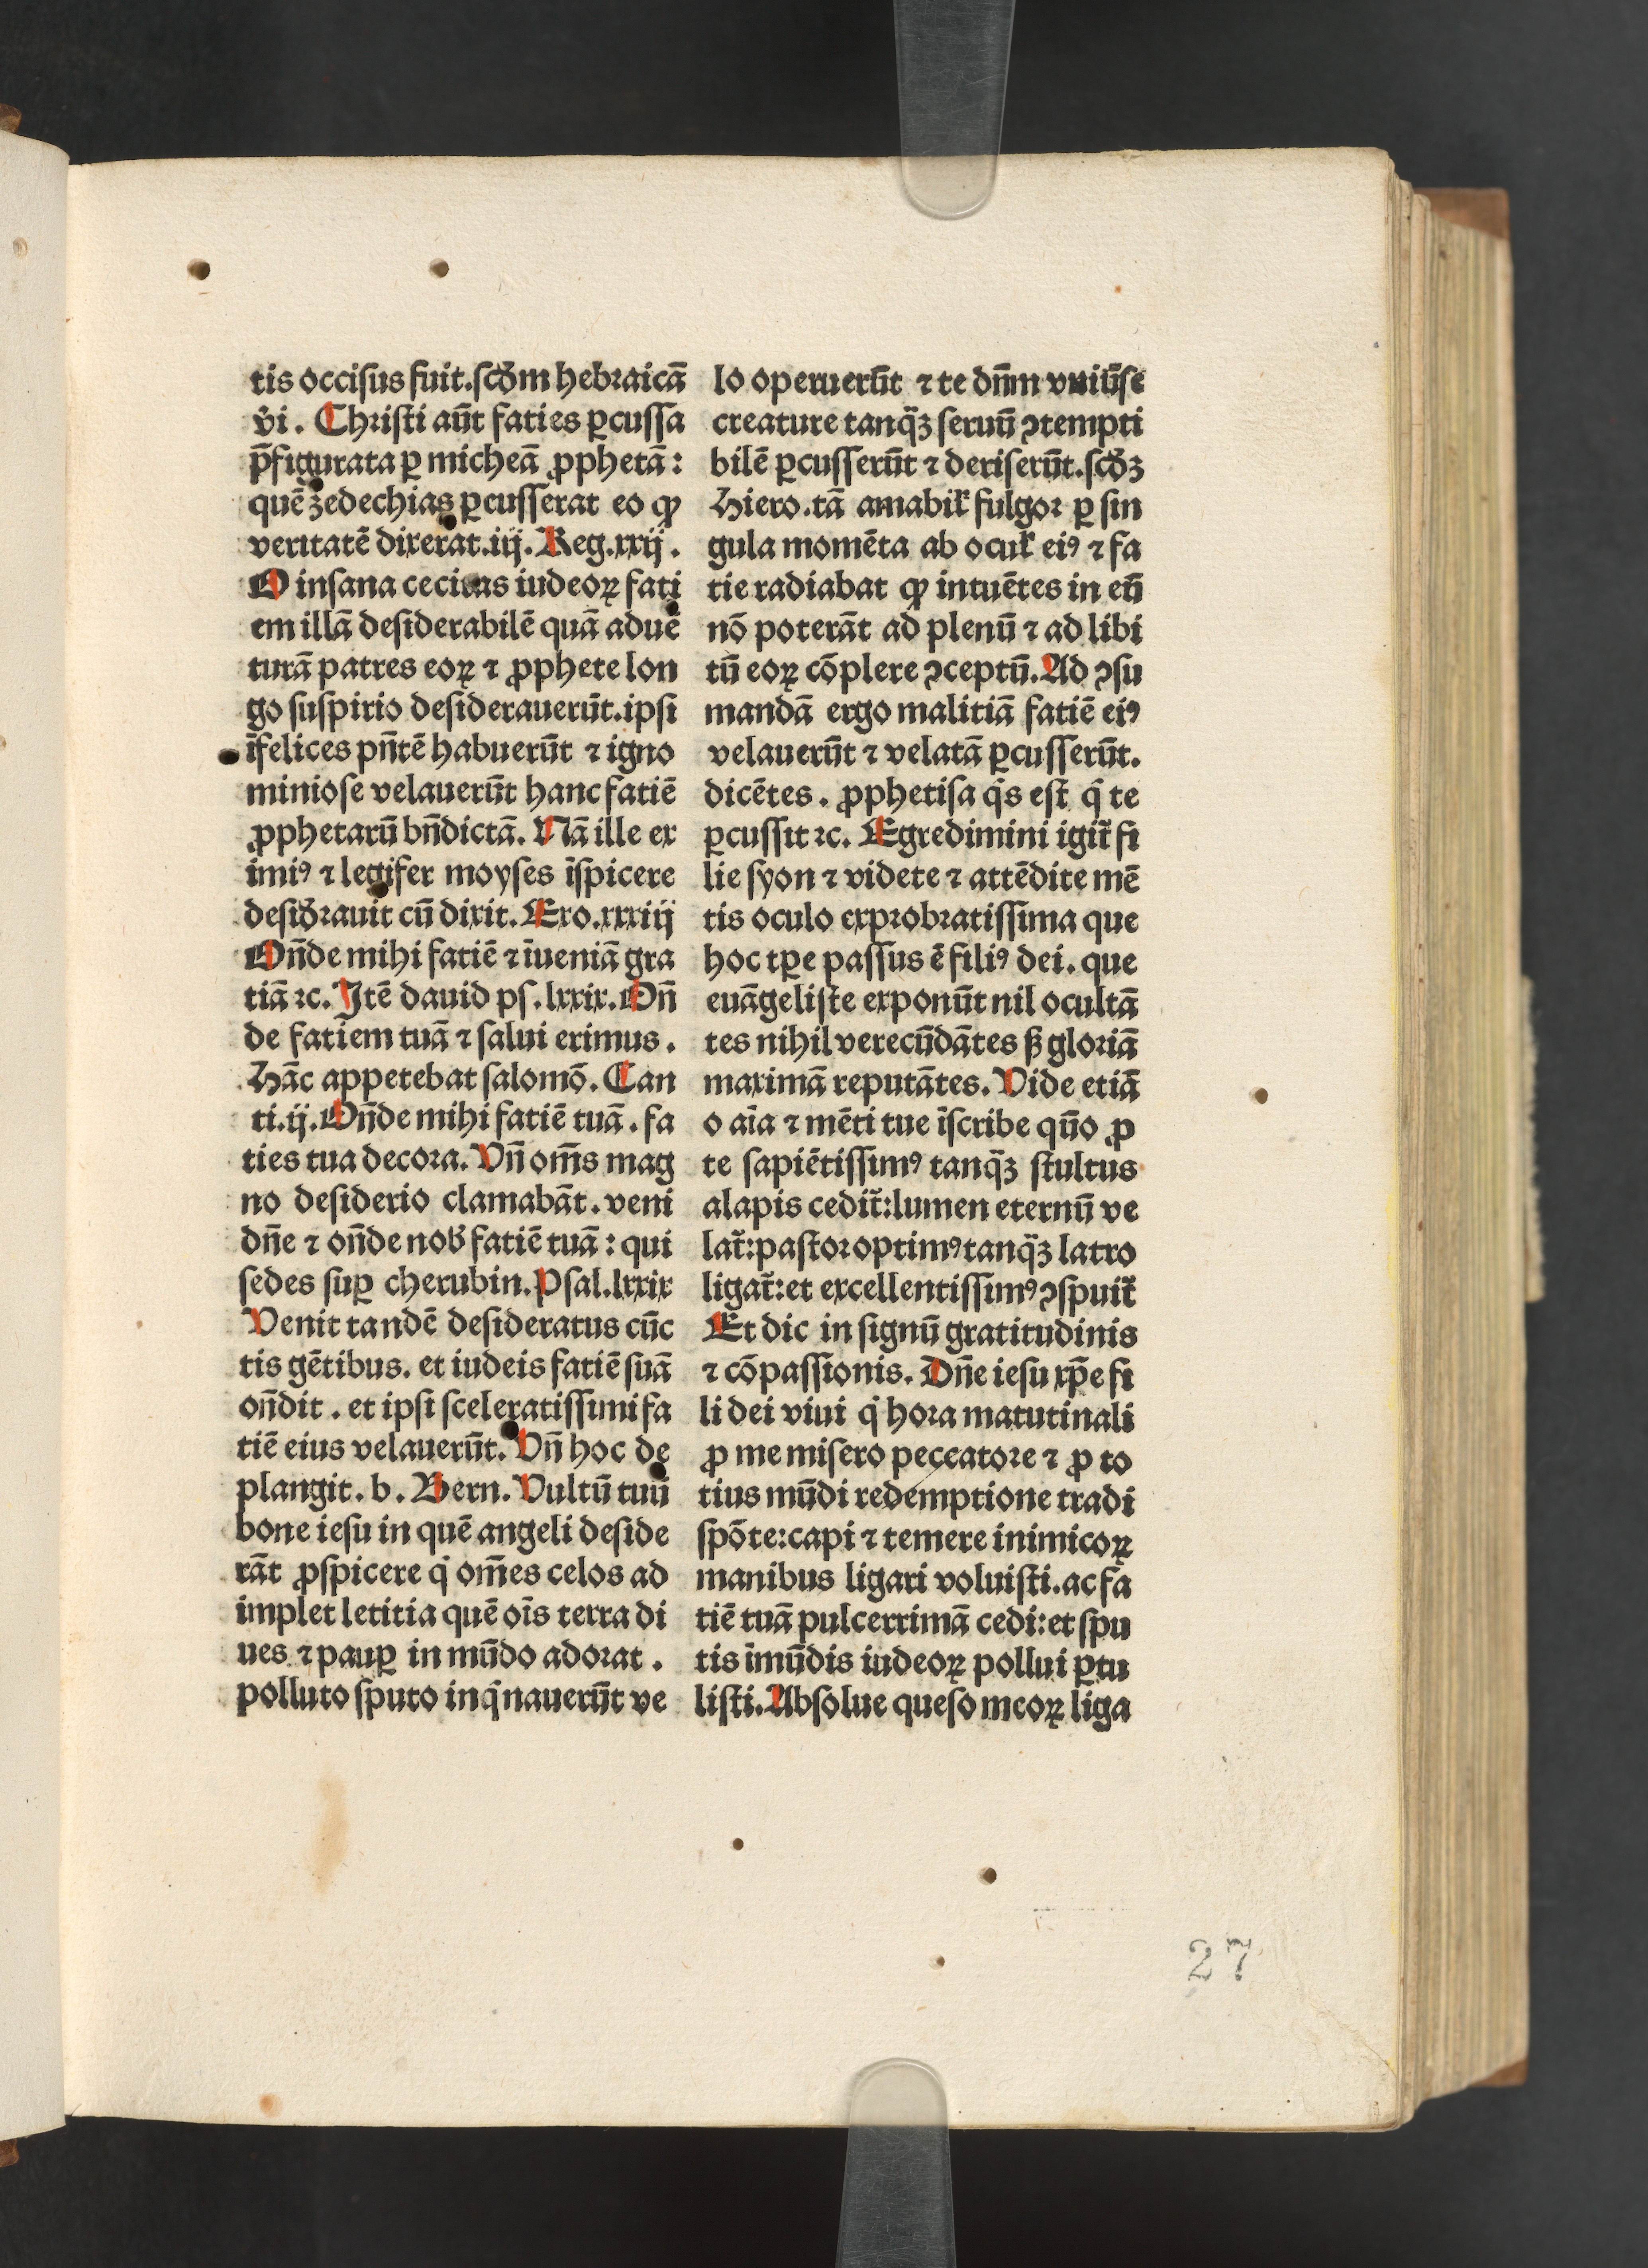 tis occisus fuit.scd̄m hebraicā
v̓i. Christi aūt faties ꝑcussa
p̄figurata ꝑ micheā ꝓphetā:
quē zedechias ꝑcusserat eo ꝙ
veritatē dixerat.iij. Reg.xxij.
O insana cecitas iudeoꝝ fati
em illā desiderabilē quā aduē
turā patres eoꝝ ⁊ ꝓphete lon
go suspirio desiderauerūt.ipsi
īfelices pn̄tē habuerūt ⁊ igno
miniose velauerūt hanc fatiē
ꝓphetarū bn̄dictā. Nā ille ex
imiꝰ ⁊ legifer moyses īspicere
desid̓rauit cū dixit. Exo.xxxiij
On̄de mihi fatiē ⁊ īueniā gra
tiā ⁊c. Itē dauid ps.lxxix. On̄
de fatiem tuā ⁊ salui erimus.
Hāc appetebat salomō. Can
ti.ij. On̄de mihi fatiē tuā. fa
ties tua decora. Vn̄ om̄s mag
no desiderio clamabāt. veni
dn̄e ⁊ on̄de nob̓ fatiē tuā: qui
sedes suꝑ cherubin. Psal.lxxix
Venit tandē desideratus cūc
tis gētibus. et iudeis fatiē suā
on̄dit. et ipsi sceleratissimi fa
tiē eius velauerūt. Vn̄ hoc de
plangit. b. Bern. Vultū tuū
bone iesu in quē angeli deside
rāt ꝓspicere qͥ om̄es celos ad
implet letitia quē oīs terra di
ues ⁊ pauꝑ in mūdo adorat.
polluto sputo inqͥnauerūt ve
lo operuerūt ⁊ te dn̄m vniūse
creature tanq̄ꝫ seruū ꝯtempti
bilē ꝑcusserūt ⁊ deriserūt.scd̓ꝫ
Hiero.tā amabilꝭ fulgor ꝑ sin
gula momēta ab oculꝭ eiꝰ ⁊ fa
tie radiabat ꝙ intuētes in eū
nō poterāt ad plenū ⁊ ad libi
tū eoꝝ cōplere ꝯceptū. Ad ꝯsu
mandā ergo malitiā fatiē eiꝰ
velauerūt ⁊ velatā ꝑcusserūt.
dicētes. ꝓphetisa qͥs est qͥ te
ꝑcussit ⁊c. Egredimini igit̄ fi
lie syon ⁊ videte ⁊ attēdite mē
tis oculo exprobratissima que
hoc tꝑe passus ē filiꝰ dei. que
euāgeliste exponūt nil ocultā
tes nihil verecūdātes sꝫ gloriā
maximā reputātes. Vide etiā
o aīa ⁊ mēti tue īscribe qn̄o ꝓ
te sapiētissimꝰ tanq̄ꝫ stultus
alapis cedit̄:lumen eternū ve
lat̄:pastor optimꝰ tanq̄ꝫ latro
ligat̄:et excellentissimꝰ ꝯspuit̄
Et dic in signū gratitudinis
⁊ cōpassionis. Dn̄e iesu xp̄e fi
li dei viui qͥ hora matutinali
ꝓ me misero peccatore ⁊ ꝓ to
tius mūdi redemptione tradi
spōte:capi ⁊ temere inimicoꝝ
manibus ligari voluisti.ac fa
tiē tuā pulcerrimā cedi:et spu
tis īmūdis iudeoꝝ pollui ꝑtu
listi. Absolue queso meoꝝ liga
27